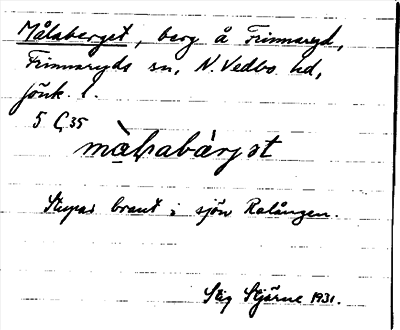 Målaberget, berg å Frinnaryd,
Frinnaryds sn, N. Vedbo hd,
Jönk. l.
5 C 35
Stupar brant i sjön Ralången.
Stig Stjärne 1931.